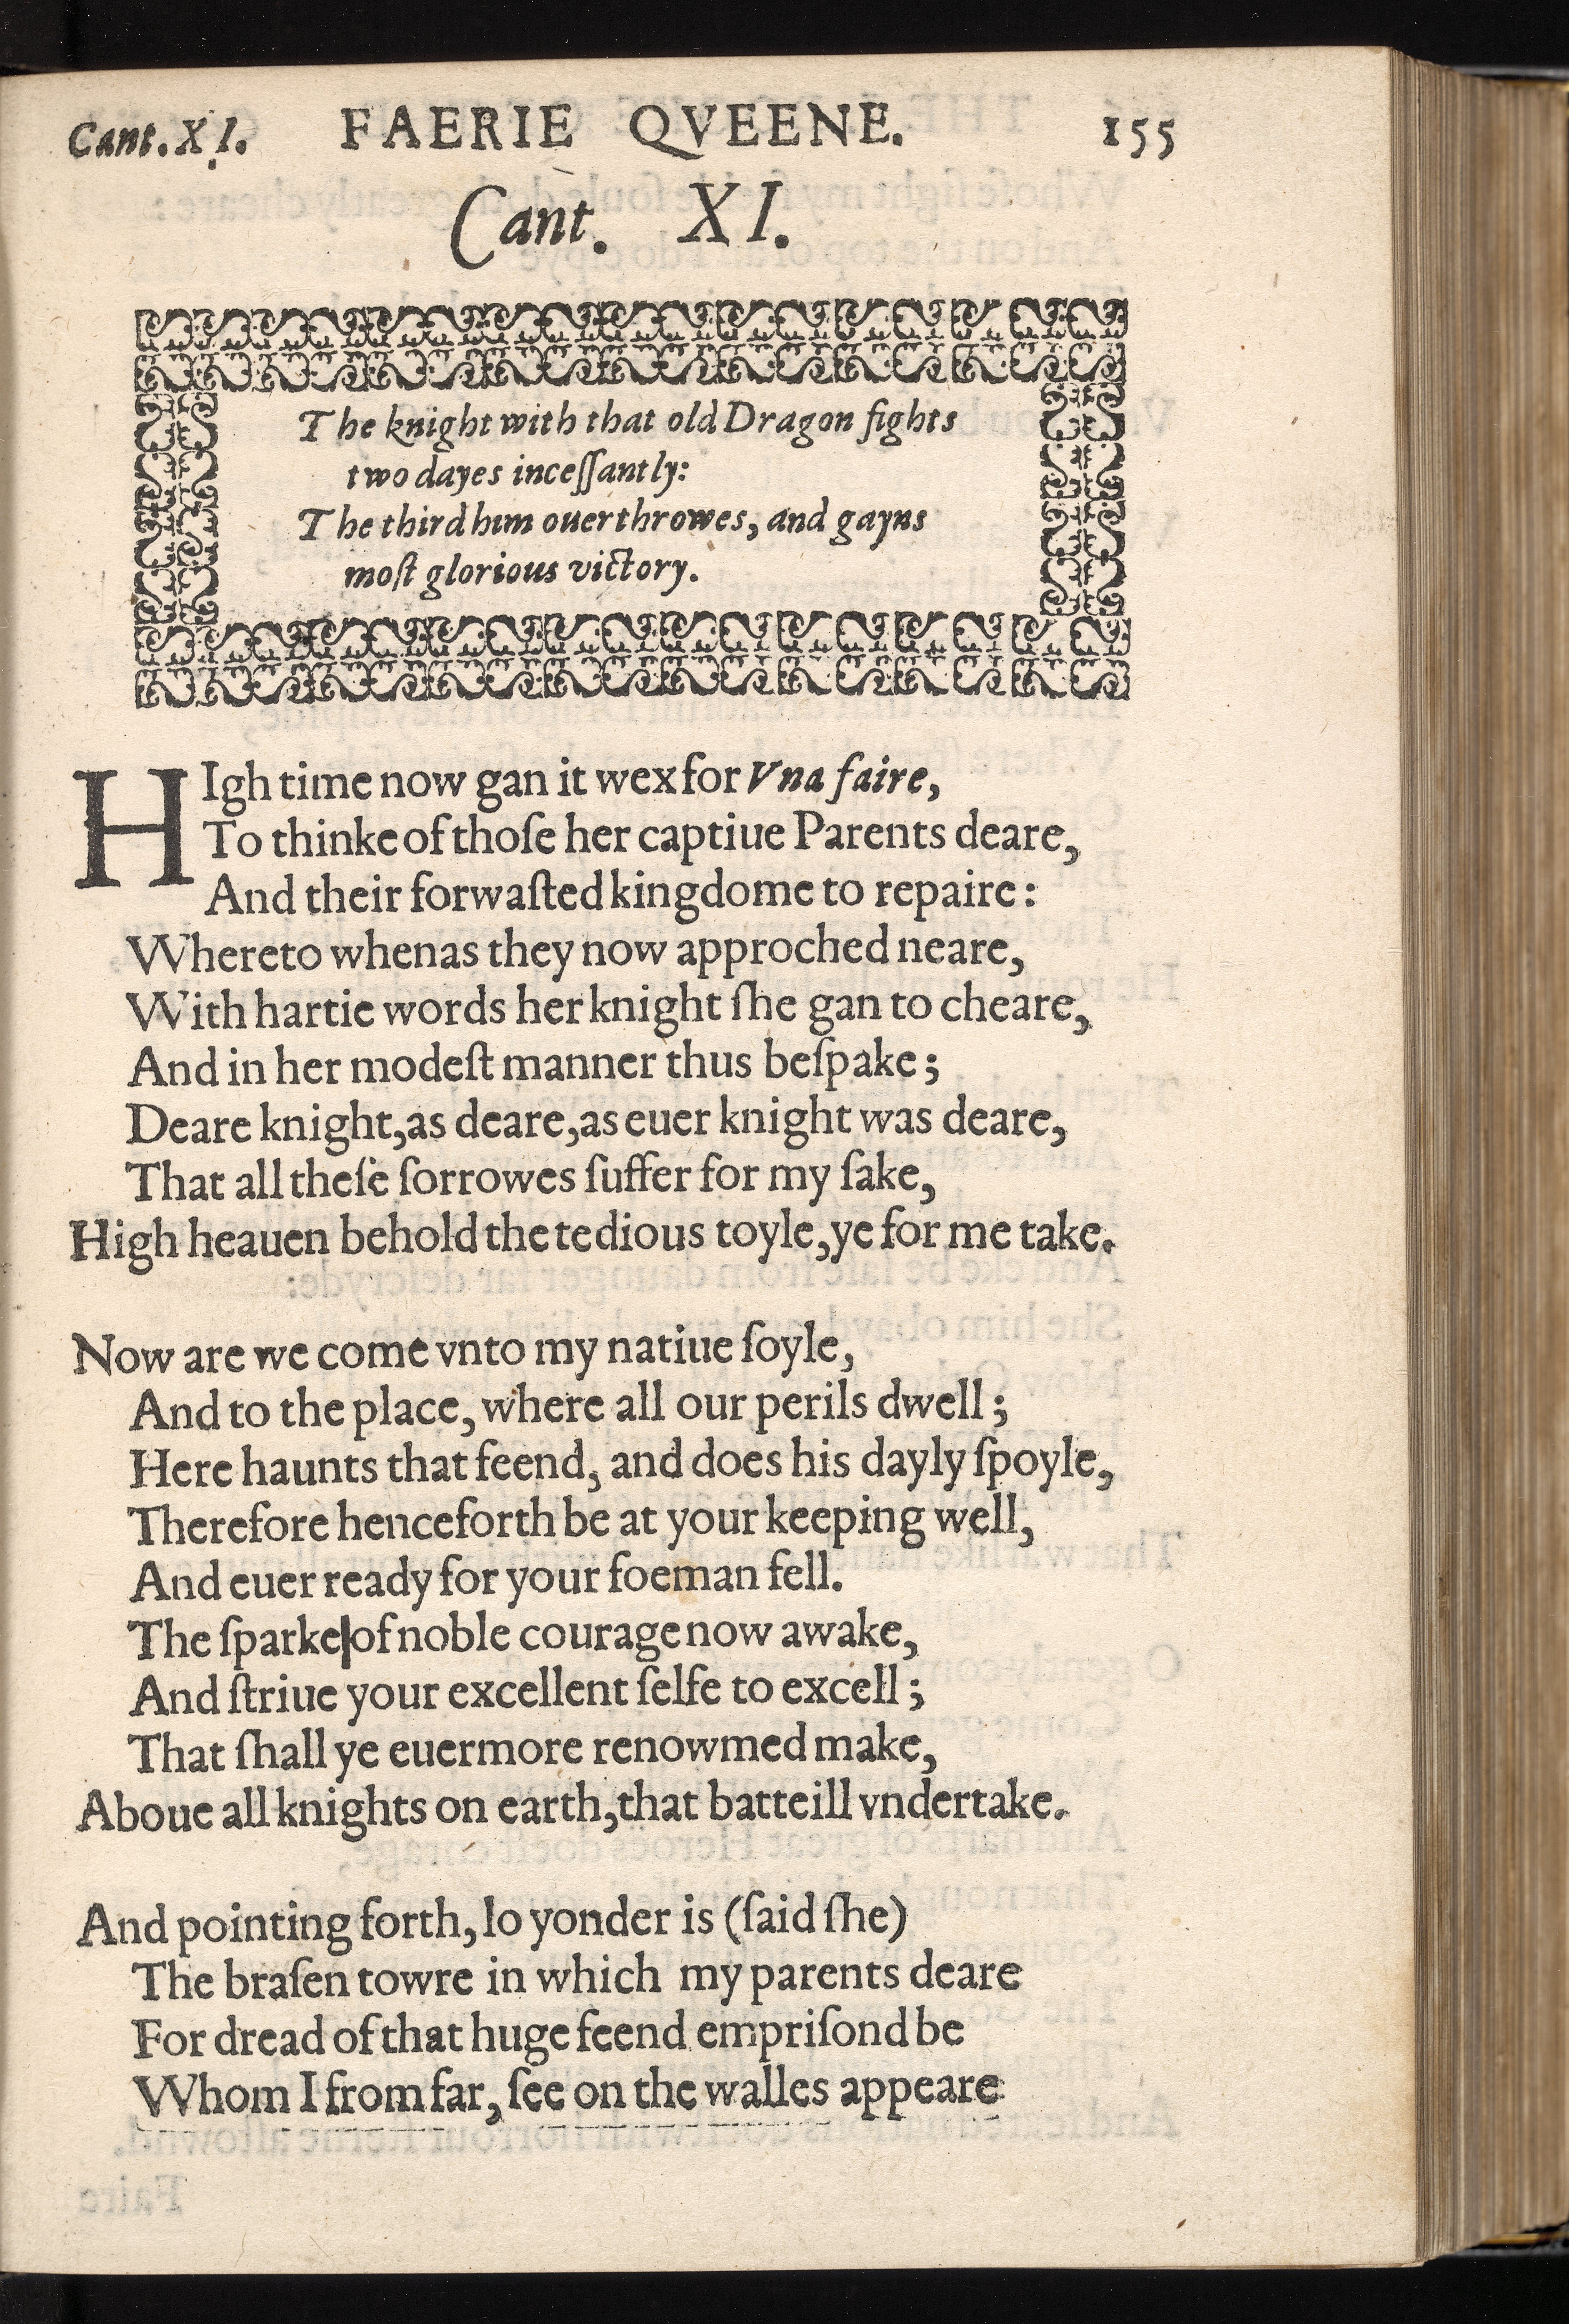 Cant. XI. FAERIE QVEENE. 155
Cant. XI.
The knight with that old Dragon fights
two dayes inceſſantly:
The third him ouerthrowes, and gayns
moſt glorious victory.
HIgh time now gan it wex for Vna faire,
To thinke of thoſe her captiue Parents deare,
And their forwaſted kingdome to repaire:
Whereto whenas they now approched neare,
With hartie words her knight ſhe gan to cheare,
And in her modeſt manner thus beſpake;
Deare knight, as deare, as euer knight was deare,
That all theſe ſorrowes ſuffer for my ſake,
High heauen behold the tedious toyle, ye for me take.
Now are we come vnto my natiue ſoyle,
And to the place, where all our perils dwell;
Here haunts that feend, and does his dayly ſpoyle,
Therefore henceforth be at your keeping well,
And euer ready for your foeman fell.
The ſparke of noble courage now awake,
And ſtriue your excellent ſelfe to excell;
That ſhall ye euermore renowmed make,
Aboue all knights on earth, that batteill vndertake.
And pointing forth, lo yonder is (ſaid ſhe)
The braſen towre in which my parents deare
For dread of that huge feend empriſond be
Whom I from far, ſee on the walles appeare